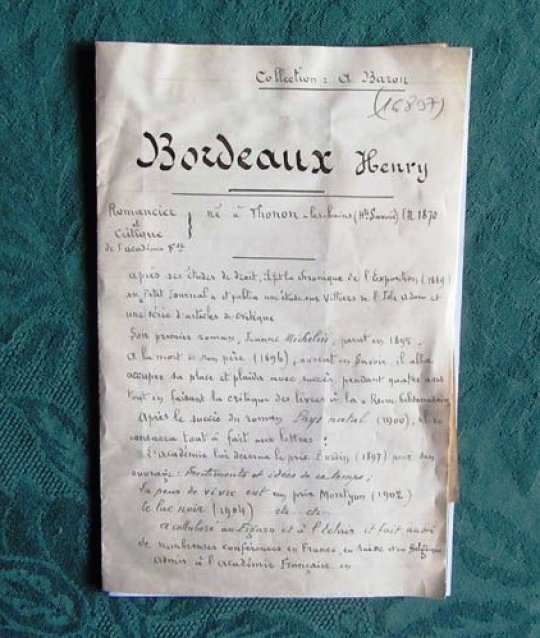 Collection : A Baron
(16897)
Bordeaux Henry
Romancier et critique de l'académie Fse } né à Thonon-les-bains (Hte Savoie) 1870
après ses études de droit, il fit la chronique de l'Exposition (1889)
au "Petit Journal" et publia une étude sur Villiers de l'Isle Adam et
une série d'articles de critique
Son premier roman, Jeanne Michelin, parut en 1895.
A la mort de son père (1896), avocat en Savoie, il alla
occuper sa place et plaida avec succès pendant quatre ans
tout en faisant la critique des livres à la « Revue hebdomadaire
Après le succès du roman Pays natal (1900), il se
consacra tout à fait aux lettres :
L'académie lui décerna le prix (1897) pour son
ouvrage : Sentiments et idées de ce temps ;
la peur de vivre eut un prix Montyon (1902)
le lac noir (1904) etc... etc...
a collaboré au Figaro et à l'Eclair et fait aussi
de nombreuses conférences en France, en Suisse et en Belgique
admis à l'académie Française en